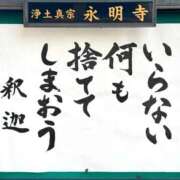 浄土真宗 永明寺
いらない
何も
捨てて
しまおう
釈迦